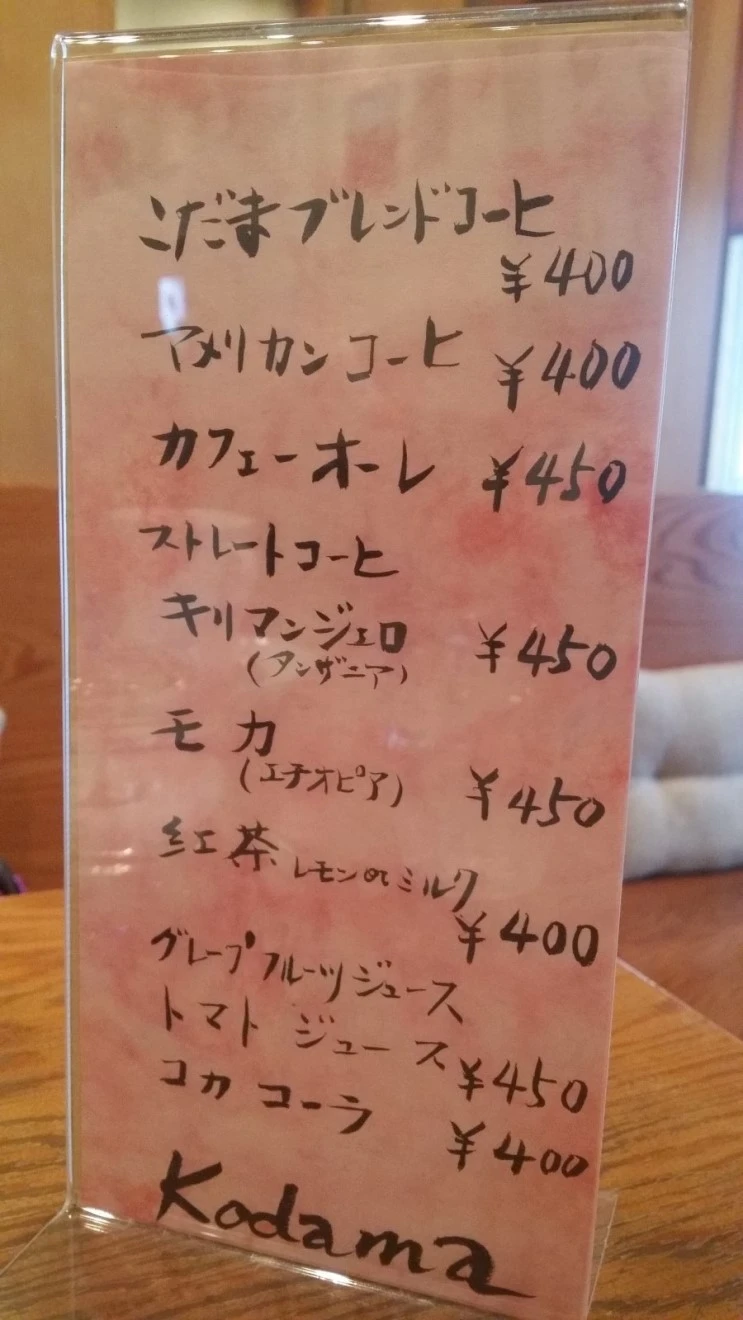 こだまブレンドコーヒ
¥400
アメリカンコーヒ ¥400
カフェーオーレ ¥450
ストレートコーヒ
キリマンジェロ
(タンザニア) ¥450
モカ
(エチオピア) ¥450
紅茶 レモン or ミルク
¥400
グレープフルーツジュース
トマトジュース ¥450
コカコーラ ¥400
Kodama